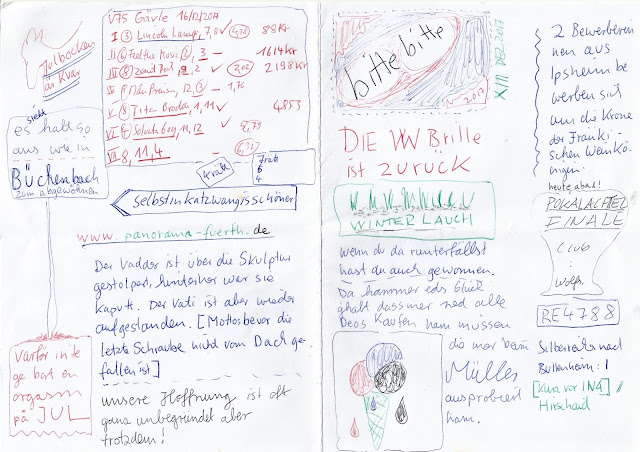 Julbocken
är kvar
V75 Gävle 16/12/2017
I ③ Lincoln Lamp, 7,8 ✓ 4,78 89Kr
1614Kr
2198Kr
4853
VII 8, 11, 4
kratt
es sieht halt so
aus wie in
Büchenbach
zum abgewöhnen
selbst in katzwang is schöner
www.panorama-fuerth.de
Der Vadder ist über die Skulptur
gestolpert, hinterher war sie
kaputt. Der Vati ist aber wieder
aufgestanden. [Motto: bevor die
letzte Schraube nicht vom Dach ge-
fallen ist]
Varför inte
ge bort en
orgasm
på JUL
unsere Hoffnung ist oft
ganz unbegründet aber
trotzdem!
bitte bitte
XIII DEZ 2017
DIE VW Brille
ist zurück
WINTERLAUCH
wenn du da runterfällst
hast du auch gewonnen.
Da hammer eds Glück
ghabt dass mer ned alle
Deos kaufen ham müssen
die mer beim
Müller
ausprobiert
ham.
2 Bewerberin
nen aus
Ipsheim be
werben sich
um die Krone
der Fränki-
schen Weinkö-
nigin.
heute abend!
POKALACHTEL
FINALE
CLUB
:
Wolfs.
RE4788
Silberreiher nach
Buttenheim: 1
[kurz vor INA] /
Hirschaid